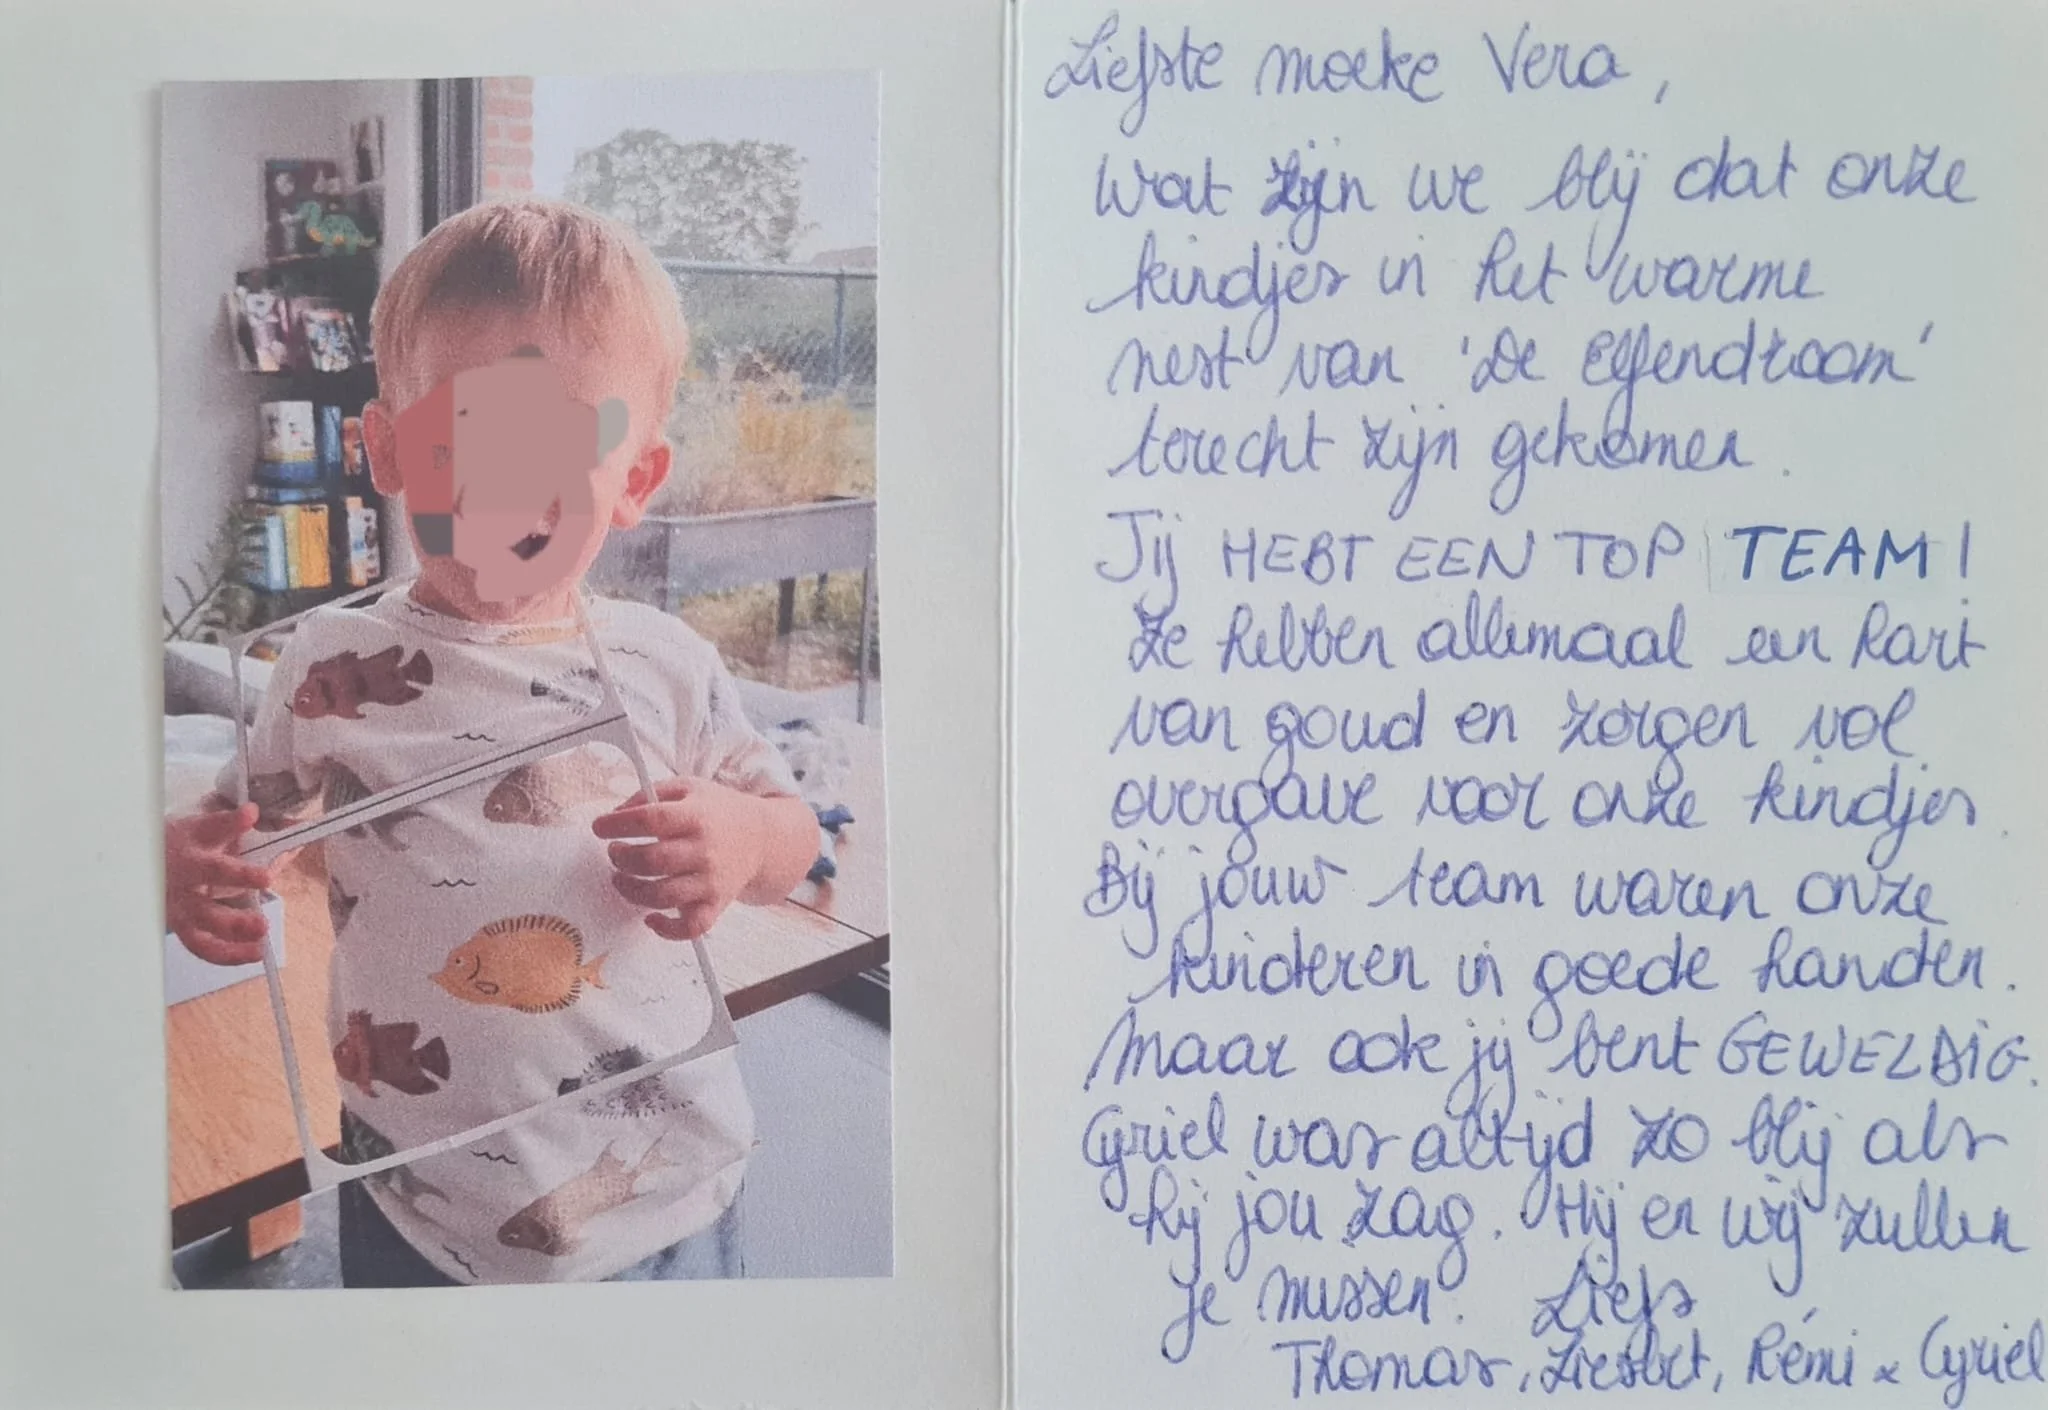 Liefste moeke Vera,
Wat zijn we blij dat onze
kindjes in het warme
nest van 'De Elfendroom'
terecht zijn gekomen.
Jij HEBT EEN TOP TEAM!
Ze hebben allemaal een hart
van goud en zorgen vol
overgave voor onze kindjes.
Bij jouw team waren onze
kinderen in goede handen.
Maar ook jij bent GEWELDIG.
Cyriel was altijd zo blij als
hij jou zag. Hij en wij zullen
je missen. Liefs
Thomas, Liesbet, Rémi x Cyriel